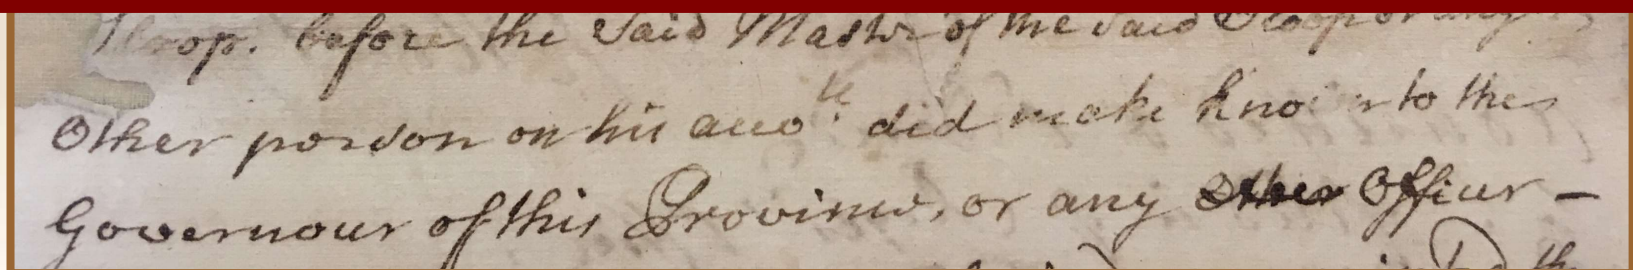 Sloop. before the Said Master of the Said Sloop or any
Other person on his acco.te did make known to the
Governour of this Province, or any Other Officer –